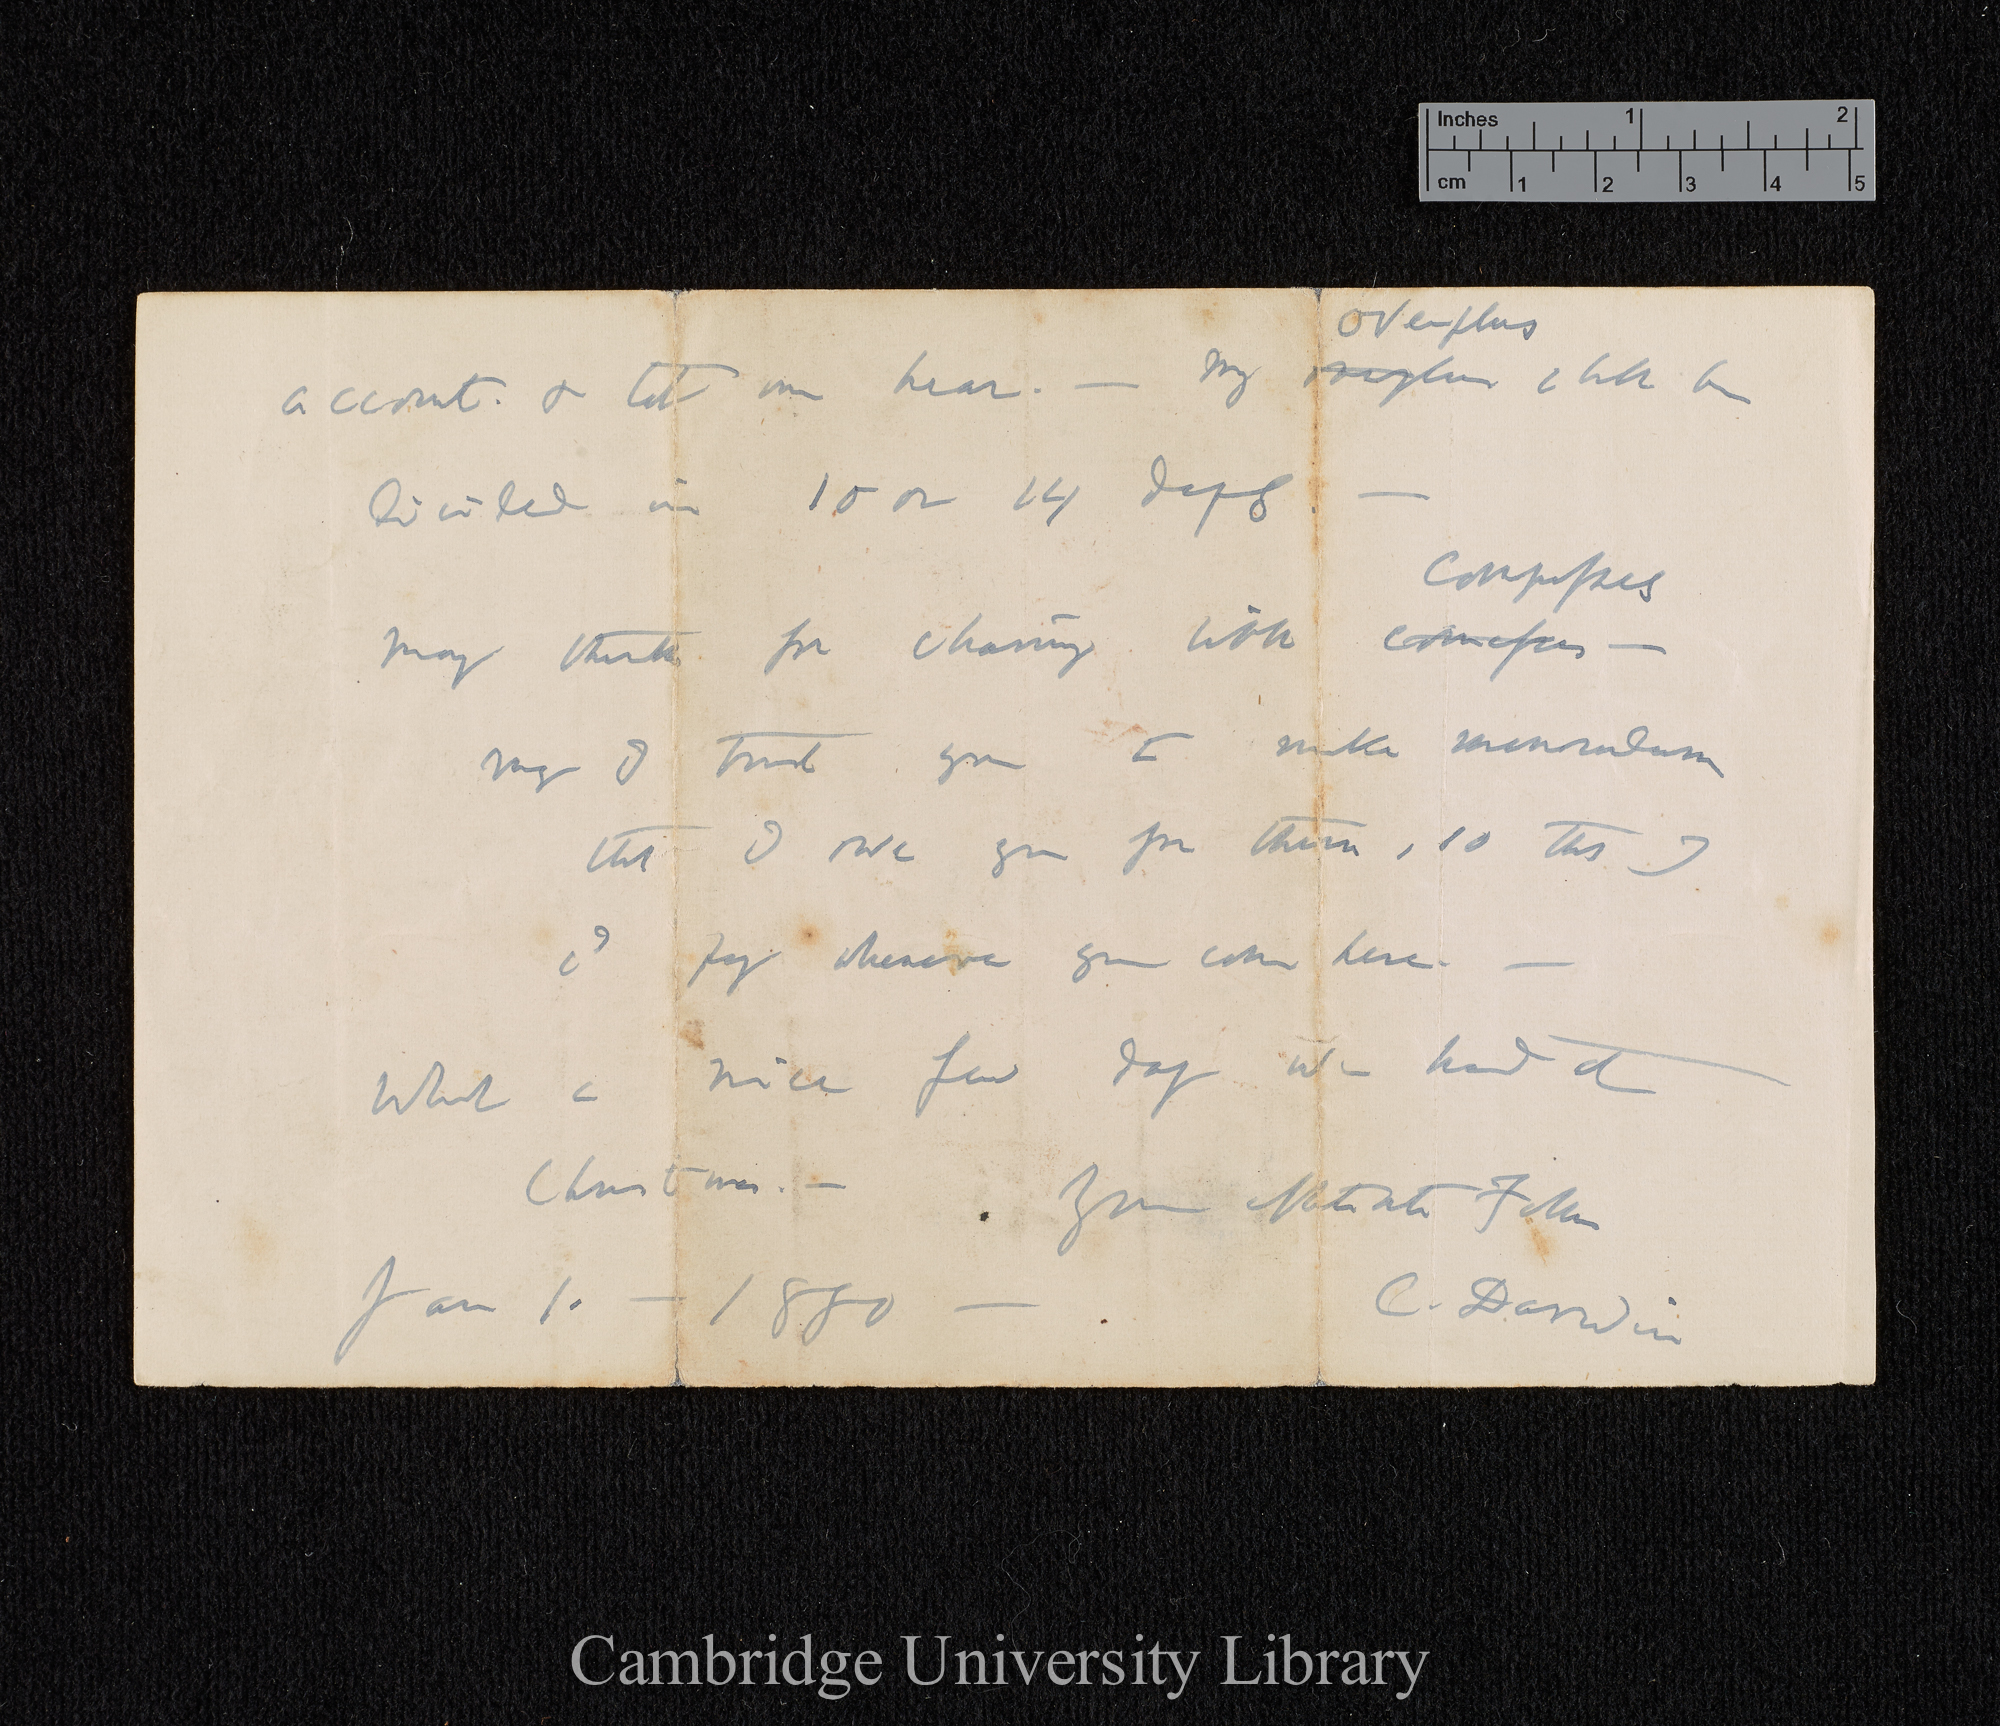 Inches 1 2
cm 1 2 3 4 5
overplus
account. & let me hear. — My overplus shall be
divided in 10 or 14 days. —
Compasses
Many thanks for choosing little compasses —
may I trust you to make memorandum
that I owe you for them, so that I
cd pay whenever you come here. —
What a nice few days we had at
Christmas. — Your affectionate Father
Jan 1. — 1880 — C. Darwin
Cambridge University Library